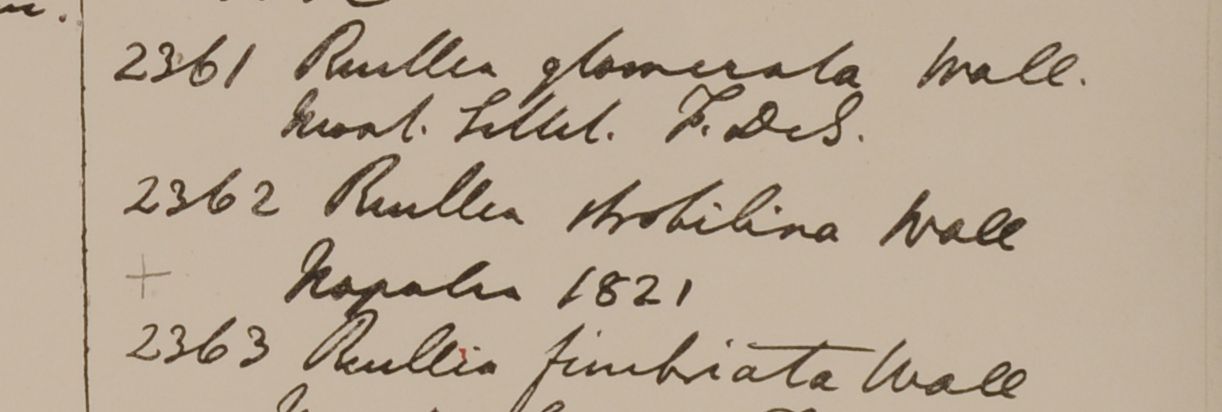 2361 Ruellia glomerata Wall.
Mont. Sillet. F. De S.
2362 Ruellia strobilina Wall
+ Napalia 1821
2363 Ruellia fimbriata Wall